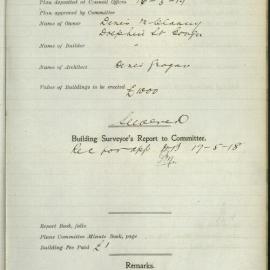 Plan deposited at Council Offices 16-5-19
Plan approved by Committee
Name of Owner Denis
Dolphin St
Name of Builder "
Name of Architect Denis Grogan
Value of Buildings to be erected £1000
Building Surveyor's Report to Committee.
Rec for app 17-5-18
Report Book, folio
Plans Committee Minute Book, page
Building Fee Paid £1
Remarks.